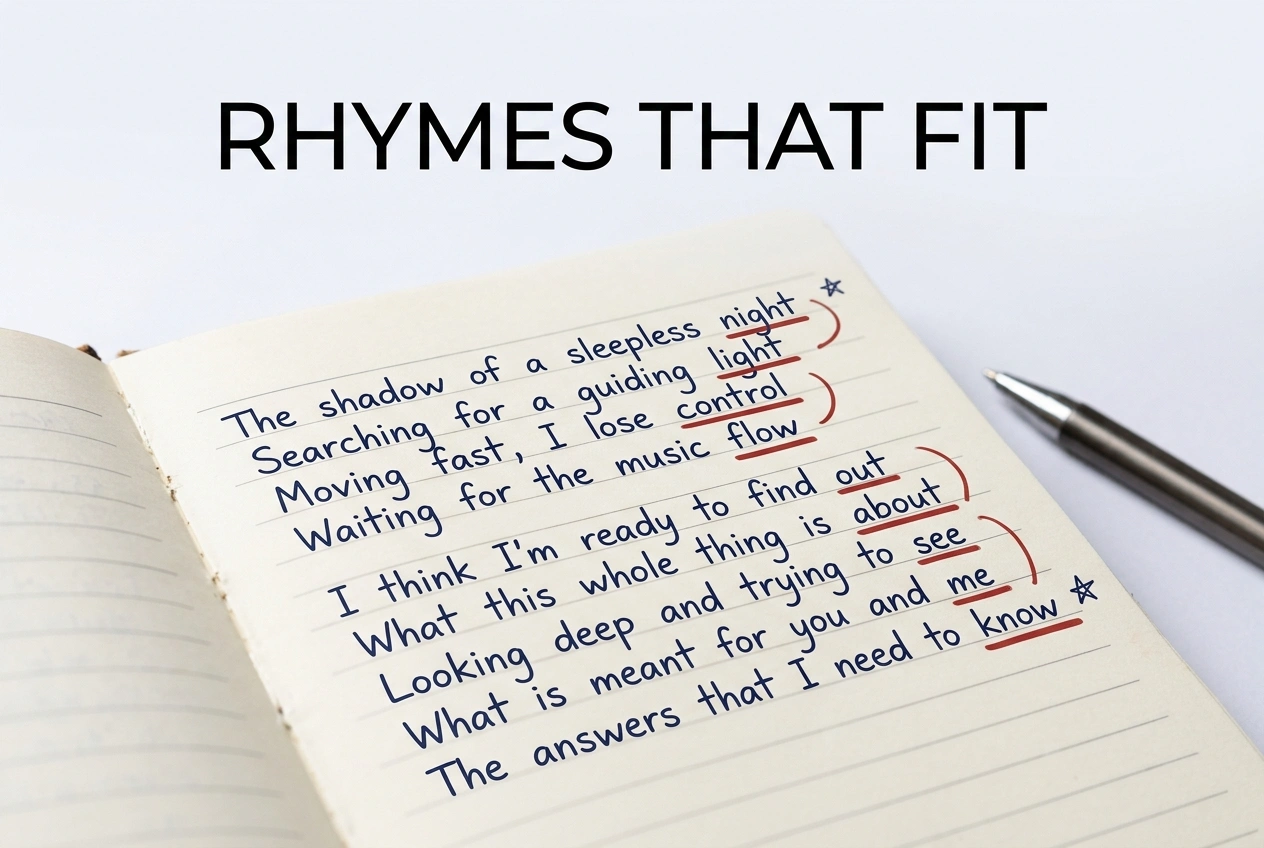 RHYMES THAT FIT
The shadow of a sleepless night ☆
Searching for a guiding light
Moving fast, I lose control
Waiting for the music flow
I think I'm ready to find out
What this whole thing is about
Looking deep and trying to see
What is meant for you and me
The answers that I need to know ☆